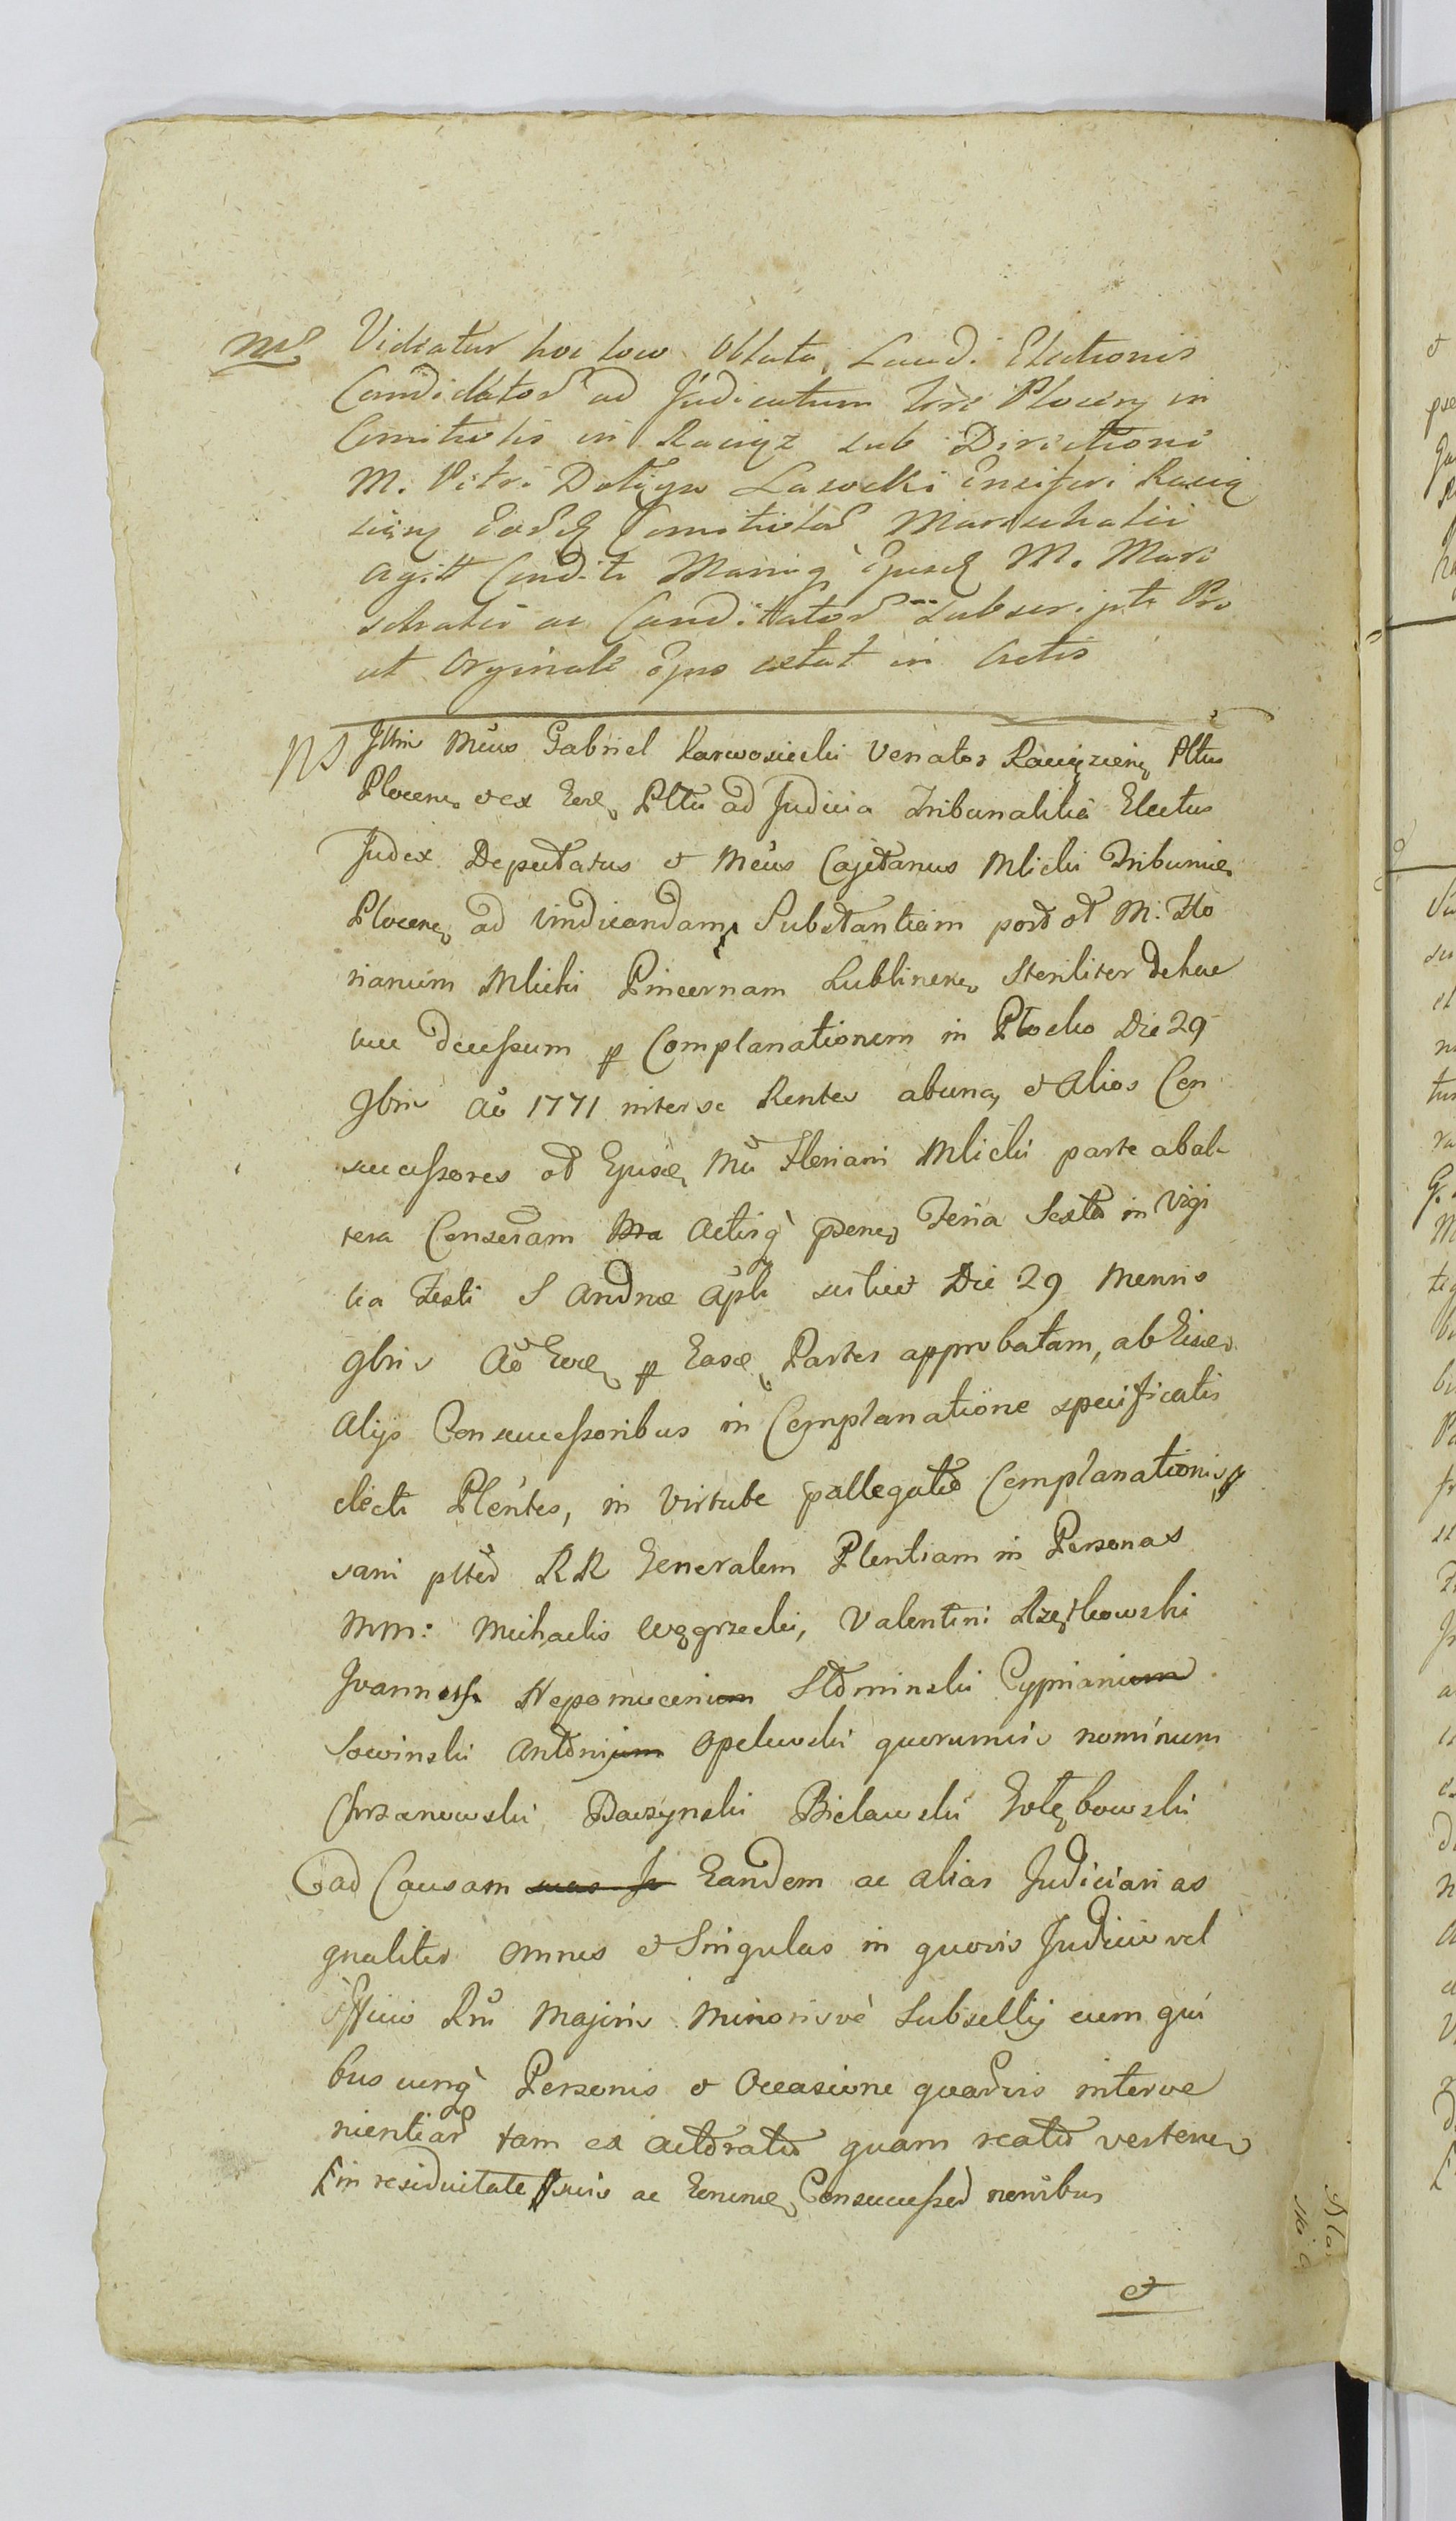 NS Videatur hoc loco Oblata Laudi Electionis
Candidator ad Judicatum Trre Plocen in
Comitiolis in Raciąż sub Directione
M. Petri Dołęga Lasocki Ensiferi Racią
zien Eord Comitiolor Mareschalci
agitt Condita Manuq Ejusd M. Mare
schalci ac Candidator subscripta Pro
ut Orginale Ejus extat in Actis
NS Jllris Mcus Gabriel Karwosiecki Venator Raciązien Pltus
Plocen et ex Eod Pltu ad Judicia Tribunalitia Electus
Judex Deputatus et Mcus Cajetanus Mlicki Tribunid
Plocen ad vindicandam Substantiam post ol M. Flo
rianum Mlicki Pincernam Lublinen Steriliter de hac
luce decessum p Complanationem in Płocko Die 29
9bris Ao 1771 inter se Rentes ab una, et Alios Con
successores ol Ejusd Mci Floriani Mlicki parte ab al
tera Conseram Actisq psene Feria Sexta in Vigi
lia Festi S Andreæ Apli scilicet Die 29 Mensis
9bris Ao Eod p Easd Partes approbatam, ab Eisd
Alijs Consuccessoribus in Complanatione specificatis
electi Plentes, in Virtute pallegatæ Complanationis
sani RR Generalem Plentiam in Personas
MM: Michaelis Węgrzecki, Valentini Rzętkowski
Joannes Nepomuceni Słominski Cypriani
Sowinski Antoni Opelewski quorumvis nominum
Chrzanowski Daszynski Bielawski Gołębowski
ad Causam Eandem ac alias Judiciarias
gnaliter omnes et Singulas in quovis Judicio vel
Officio Rni Majoris Minorisve Subsellij cum qui
buscunq Personis et Occasione quarvis interve
nientiar tam ex actoratu quam reatu verten
in residuitate suis ac Eorund Consuccessor noibus
et